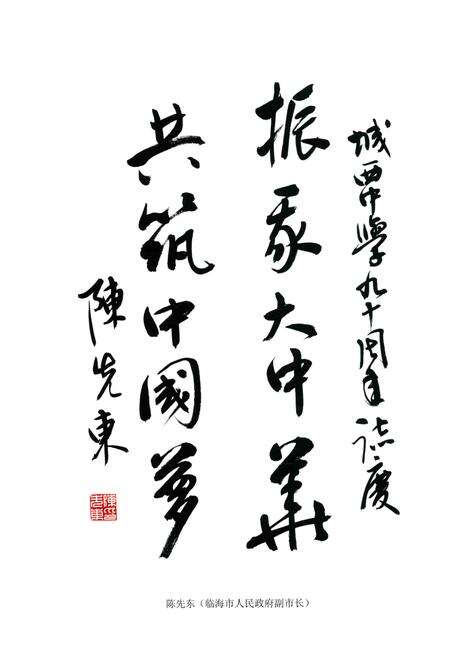 城西中學九十周年誌慶
振我大中華
共筑中國夢
陳先东
陈先东（临海市人民政府副市长）